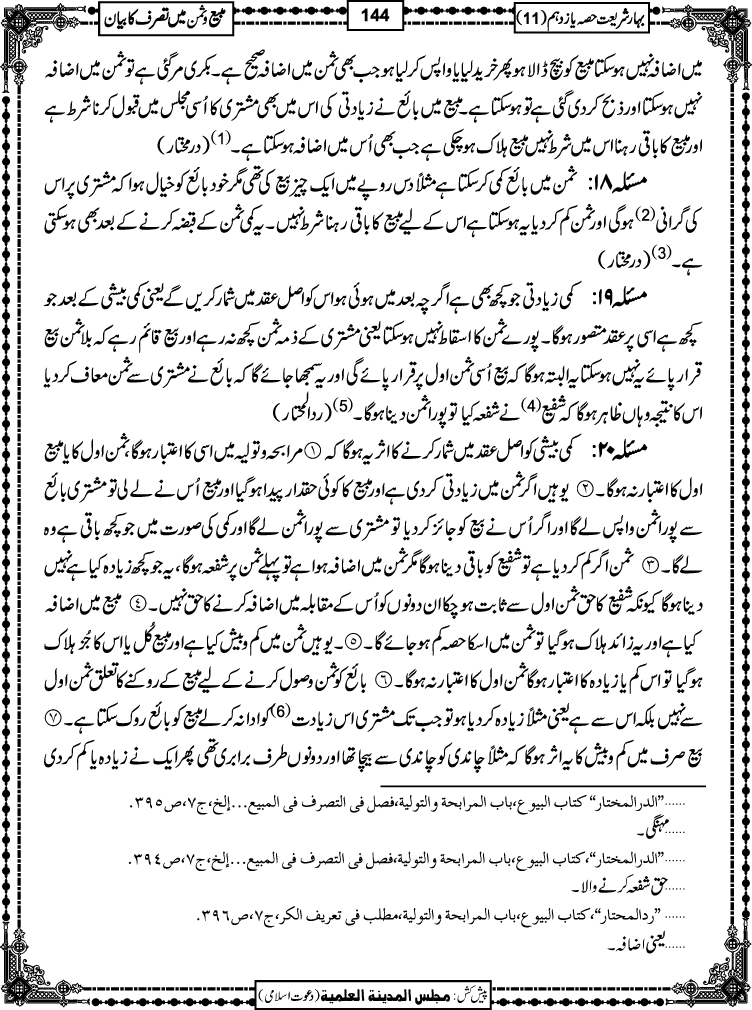 بہارِ شریعت حصہ یازدہم (11)
144
مبیع و ثمن میں تصرف کا بیان
میں اضافہ نہیں ہوسکتا مبیع کو بیچ ڈالا ہو پھر خرید لیا یا واپس کر لیا ہو جب بھی ثمن میں اضافہ صحیح ہے۔ بکری مرگئی ہے تو ثمن میں اضافہ
نہیں ہوسکتا اور ذبح کردی گئی ہے تو ہوسکتا ہے۔ مبیع میں بائع نے زیادتی کی اس میں بھی مشتری کا اُسی مجلس میں قبول کرنا شرط ہے
اور مبیع کا باقی رہنا اس میں شرط نہیں مبیع ہلاک ہوچکی ہے جب بھی اُس میں اضافہ ہوسکتا ہے۔(1) (درمختار)
مسئلہ ۱۸: ثمن میں بائع کمی کرسکتا ہے مثلاً دس روپے میں ایک چیز بیع کی تھی مگر خود بائع کو خیال ہوا کہ مشتری پر اس
کی گرانی(2) ہوگی اور ثمن کم کردیا یہ ہوسکتا ہے اس کے لیے مبیع کا باقی رہنا شرط نہیں۔ یہ کمی ثمن کے قبضہ کرنے کے بعد بھی ہوسکتی
ہے۔(3) (درمختار)
مسئلہ ۱۹: کمی زیادتی جو کچھ بھی ہے اگرچہ بعد میں ہوئی ہو اس کو اصل عقد میں شمار کریں گے یعنی کمی بیشی کے بعد جو
کچھ ہے اسی پر عقد متصور ہوگا۔ پورے ثمن کا اسقاط نہیں ہوسکتا یعنی مشتری کے ذمہ ثمن کچھ نہ رہے اور بیع قائم رہے کہ بلاثمن بیع
قرار پائے یہ نہیں ہوسکتا یہ البتہ ہوگا کہ بیع اُسی ثمن اول پر قرار پائے گی اور یہ سمجھا جائے گا کہ بائع نے مشتری سے ثمن معاف کردیا
اس کا نتیجہ وہاں ظاہر ہوگا کہ شفیع(4) نے شفعہ کیا تو پورا ثمن دینا ہوگا۔(5) (ردالمحتار)
مسئلہ ۲۰: کمی بیشی کو اصل عقد میں شمار کرنے کا اثر یہ ہوگا کہ ① مرابحہ و تولیہ میں اسی کا اعتبار ہوگا، ثمن اول کا یا مبیع
اول کا اعتبار نہ ہوگا۔ ② یوہیں اگر ثمن میں زیادتی کردی ہے اور مبیع کا کوئی حقدار پیدا ہوگیا اور مبیع اُس نے لے لی تو مشتری بائع
سے پورا ثمن واپس لے گا اور اگر اُس نے بیع کو جائز کردیا تو مشتری سے پورا ثمن لے گا اور کمی کی صورت میں جو کچھ باقی ہے وہ
لے گا۔ ③ ثمن اگر کم کردیا ہے تو شفیع کو باقی دینا ہوگا مگر ثمن میں اضافہ ہوا ہے تو پہلے ثمن پر شفعہ ہوگا، یہ جو کچھ زیادہ کیا ہے نہیں
دینا ہوگا کیونکہ شفیع کا حق ثمن اول سے ثابت ہوچکا ان دونوں کو اُس کے مقابلہ میں اضافہ کرنے کا حق نہیں۔ ④ مبیع میں اضافہ
کیا ہے اور یہ زائد ہلاک ہوگیا تو ثمن میں اسکا حصہ کم ہوجائے گا۔ ⑤۔ یوہیں ثمن میں کم و بیش کیا ہے اور مبیع کُل یا اس کا جُز ہلاک
ہوگیا تو اس کم یا زیادہ کا اعتبار ہوگا ثمن اول کا اعتبار نہ ہوگا۔ ⑥ بائع کو ثمن وصول کرنے کے لیے مبیع کے روکنے کا تعلق ثمن اول
سے نہیں بلکہ اس سے ہے یعنی مثلاً زیادہ کردیا ہو تو جب تک مشتری اس زیادت(6) کو ادا نہ کرلے مبیع کو بائع روک سکتا ہے۔ ⑦
بیع صرف میں کم و بیش کا یہ اثر ہوگا کہ مثلاً چاندی کو چاندی سے بیچا تھا اور دونوں طرف برابری تھی پھر ایک نے زیادہ یا کم کردی
......"الدرالمختار" کتاب البیوع،باب المرابحة والتولیة،فصل فی التصرف فی المبیع...إلخ،ج۷،ص۳۹۵.
......مہنگی۔
......"الدرالمختار"،کتاب البیوع،باب المرابحة والتولیة،فصل فی التصرف فی المبیع...إلخ،ج۷،ص۳۹٤.
......حق شفعہ کرنے والا۔
...... "ردالمحتار"،کتاب البیوع،باب المرابحة والتولیة،مطلب فی تعریف الکر،ج۷،ص۳۹٦.
......یعنی اضافہ۔
پیش کش: مجلس المدینة العلمیة (دعوت اسلامی)